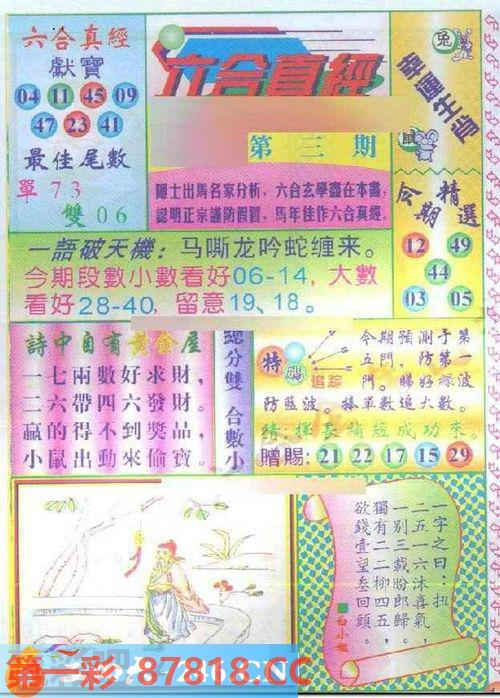 六合真經
獻寶
04 11 45 09
47 23 41
最佳尾數
單 7 3
雙 0 6
六合真經
第三期
隱士出馬名家分析，六合玄學盡在本書，
認明正宗謹防假冒，馬年佳作六合真經。
兔
幸運生肖
鼠
今期精選
12 49
44
03 05
一語破天機：马嘶龙吟蛇缠来。
今期段數小數看好06-14，大數
看好28-40，留意19、18。
詩中自有黃金屋
一七兩數好求財，
二六帶四六發財。
贏的得不到獎品，
小鼠出動來偷寶。
總分雙 合數小
特碼
追踪
今期預測于第
五門，防第一
門。睇好綠波
防藍波。捧單數追大數。
成功來。
贈賜：21 22 17 15 29
一字之曰：扭
二五一六沐喜氣，
一别三載盼郎歸，
獨有二二柳四五，
欲錢壹望叁回頭。
白小姐
第一彩 87818.CC